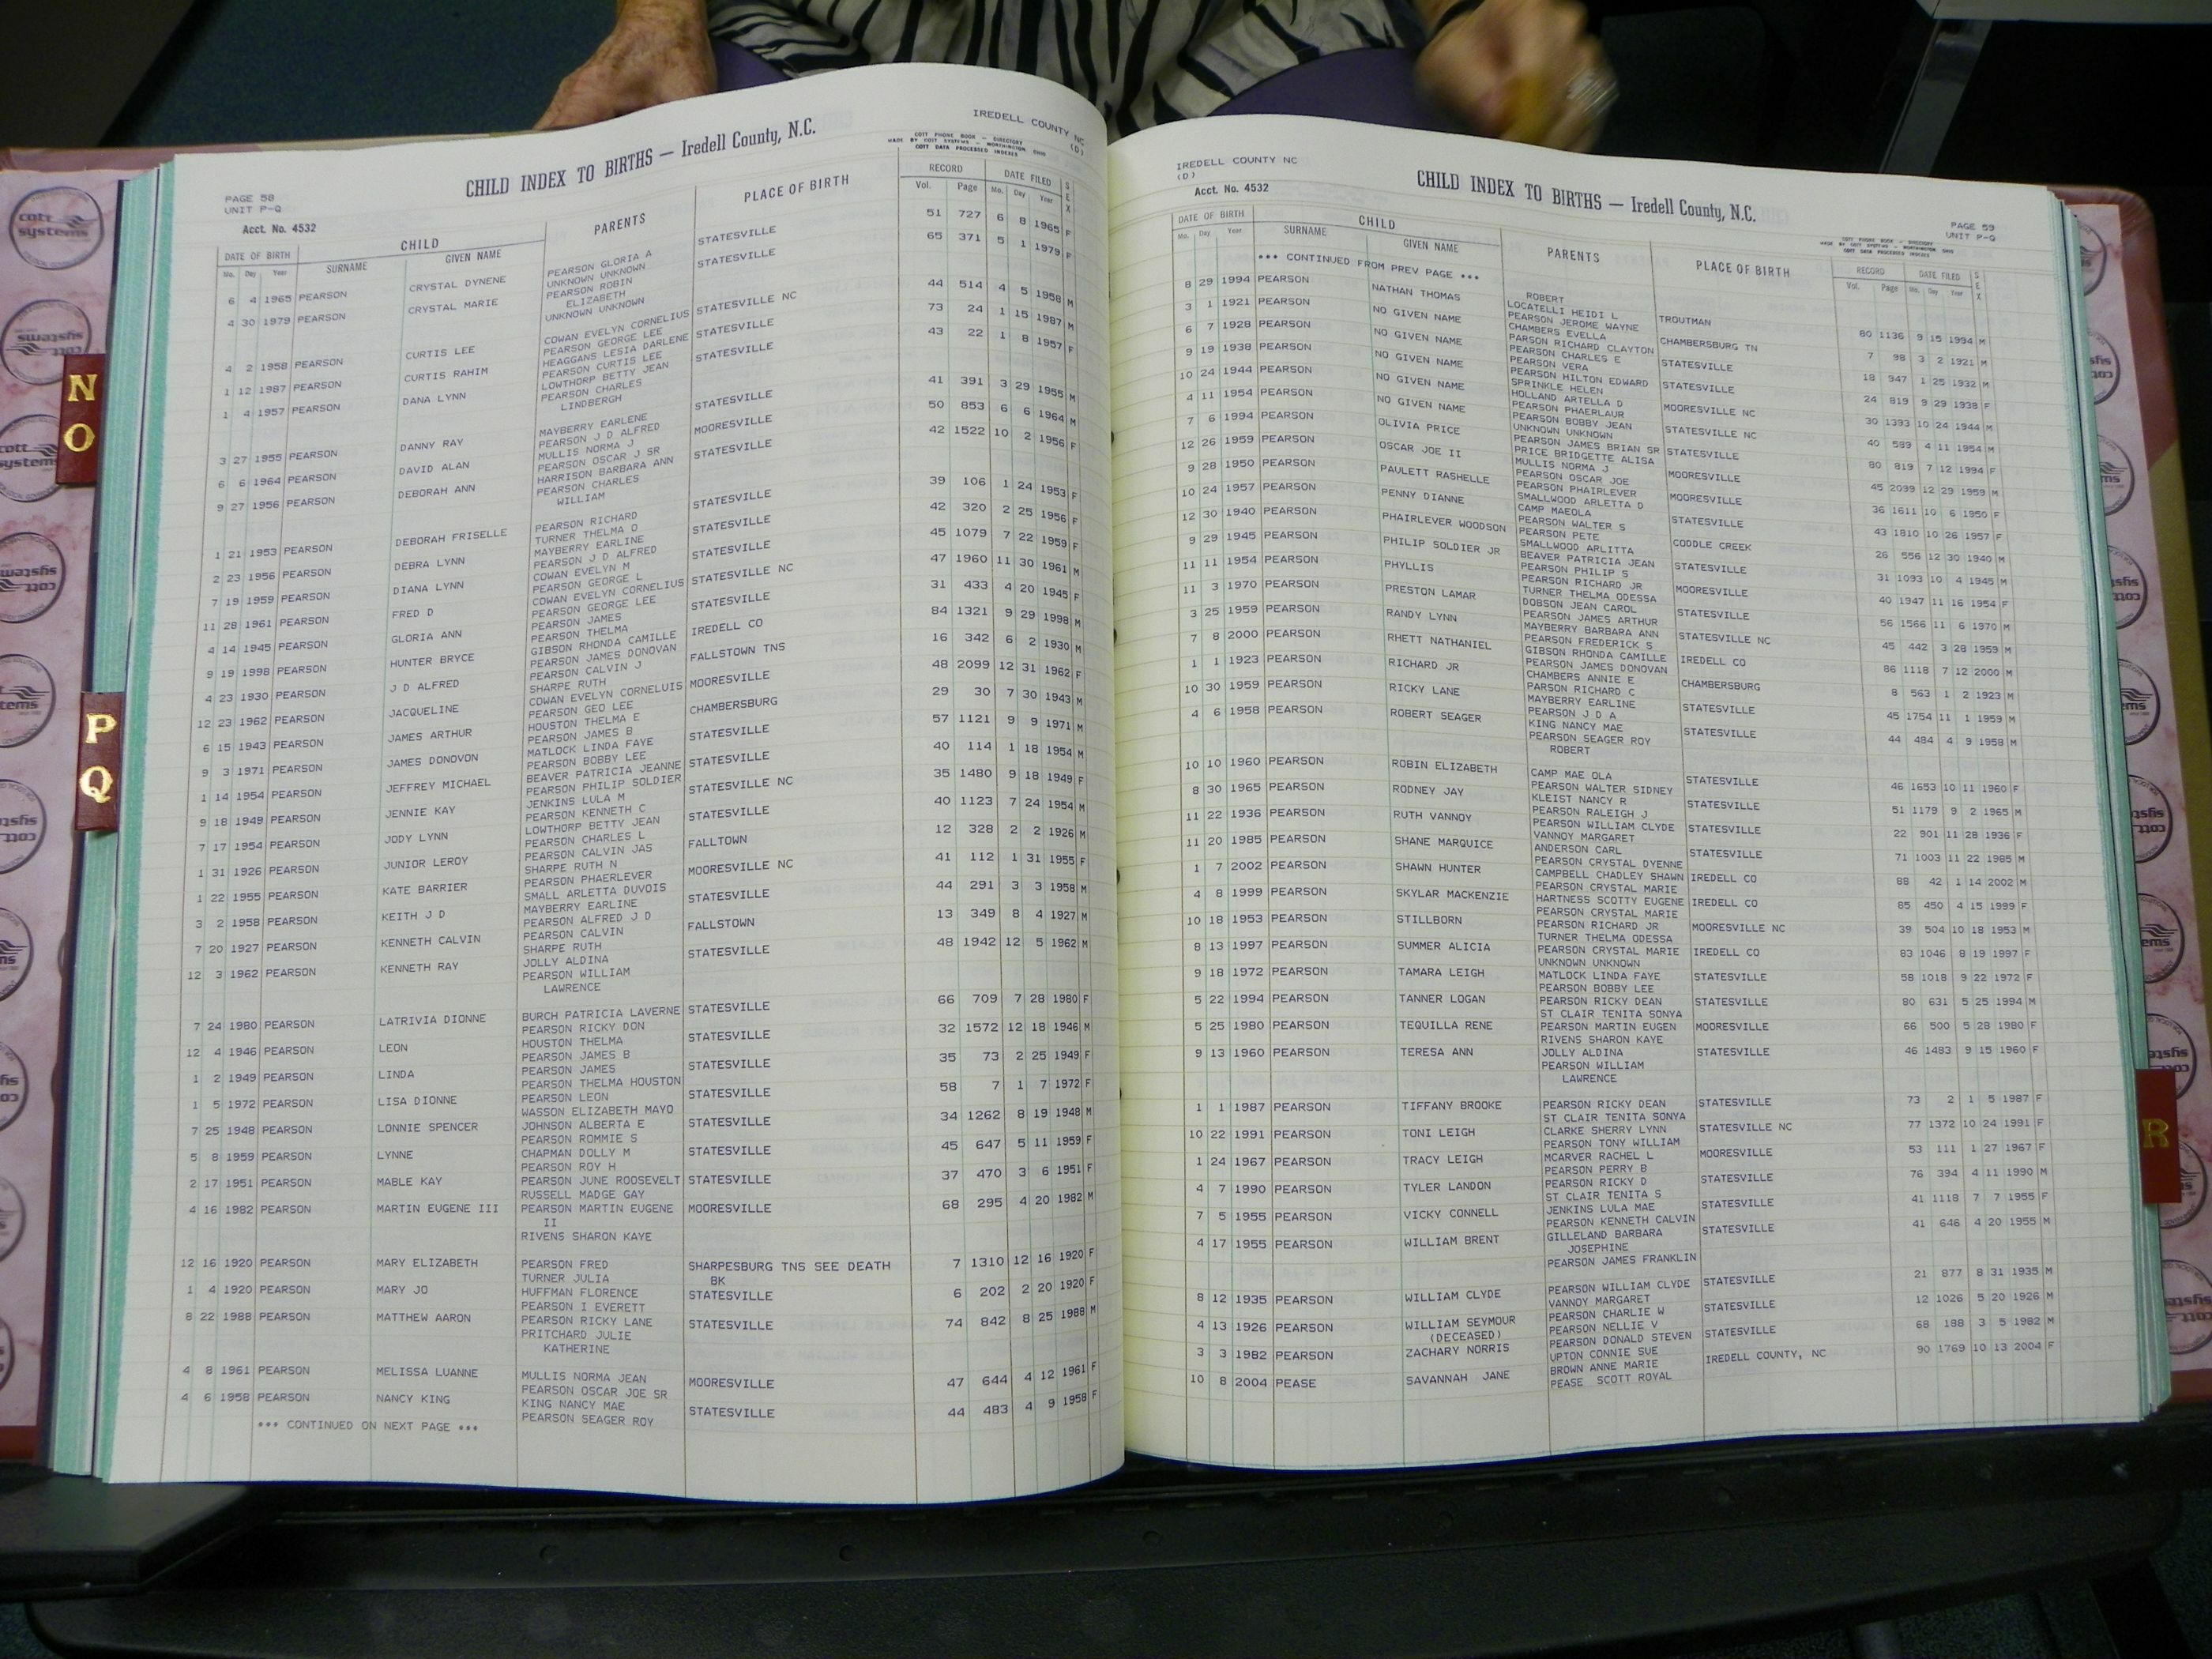 IREDELL COUNTY NC
(D)
CHILD INDEX TO BIRTHS — Iredell County, N.C.
COTT PHONE BOOK — DIRECTORY
MADE BY COTT SYSTEMS — WORTHINGTON OHIO
COTT DATA PROCESSED INDEXES
PAGE 58
UNIT P-Q
Acct. No. 4532
DATE OF BIRTH CHILD PARENTS PLACE OF BIRTH RECORD DATE FILED SEX
Mo. Day Year SURNAME GIVEN NAME Vol. Page Mo. Day Year
6 4 1965 PEARSON CRYSTAL DYNENE PEARSON GLORIA A STATESVILLE 51 727 6 8 1965 F
UNKNOWN UNKNOWN
4 30 1979 PEARSON CRYSTAL MARIE PEARSON ROBIN STATESVILLE 65 371 5 1 1979 F
ELIZABETH
UNKNOWN UNKNOWN
4 2 1958 PEARSON CURTIS LEE COWAN EVELYN CORNELIUS STATESVILLE NC 44 514 4 5 1958 M
PEARSON GEORGE LEE
1 12 1987 PEARSON CURTIS RAHIM HEAGGANS LESIA DARLENE STATESVILLE 73 24 1 15 1987 M
PEARSON CURTIS LEE
1 4 1957 PEARSON DANA LYNN LOWTHORP BETTY JEAN STATESVILLE 43 22 1 8 1957 F
PEARSON CHARLES
LINDBERGH
3 27 1955 PEARSON DANNY RAY MAYBERRY EARLENE STATESVILLE 41 391 3 29 1955 M
PEARSON J D ALFRED
6 6 1964 PEARSON DAVID ALAN MULLIS NORMA J MOORESVILLE 50 853 6 6 1964 M
PEARSON OSCAR J SR
9 27 1956 PEARSON DEBORAH ANN HARRISON BARBARA ANN STATESVILLE 42 1522 10 2 1956 F
PEARSON CHARLES
WILLIAM
1 21 1953 PEARSON DEBORAH FRISELLE PEARSON RICHARD STATESVILLE 39 106 1 24 1953 F
TURNER THELMA O
2 23 1956 PEARSON DEBRA LYNN MAYBERRY EARLINE STATESVILLE 42 320 2 25 1956 F
PEARSON J D ALFRED
7 19 1959 PEARSON DIANA LYNN COWAN EVELYN M STATESVILLE 45 1079 7 22 1959 F
PEARSON GEORGE L
11 28 1961 PEARSON FRED D COWAN EVELYN CORNELIUS STATESVILLE NC 47 1960 11 30 1961 M
PEARSON GEORGE LEE
4 14 1945 PEARSON GLORIA ANN PEARSON JAMES STATESVILLE 31 433 4 20 1945 F
PEARSON THELMA
9 19 1998 PEARSON HUNTER BRYCE GIBSON RHONDA CAMILLE IREDELL CO 84 1321 9 29 1998 M
PEARSON JAMES DONOVAN
4 23 1930 PEARSON J D ALFRED PEARSON CALVIN J FALLSTOWN TNS 16 342 6 2 1930 M
SHARPE RUTH
12 23 1962 PEARSON JACQUELINE COWAN EVELYN CORNELUIS MOORESVILLE 48 2099 12 31 1962 F
PEARSON GEO LEE
6 15 1943 PEARSON JAMES ARTHUR HOUSTON THELMA E CHAMBERSBURG 29 30 7 30 1943 M
PEARSON JAMES B
9 3 1971 PEARSON JAMES DONOVON MATLOCK LINDA FAYE STATESVILLE 57 1121 9 9 1971 M
PEARSON BOBBY LEE
1 14 1954 PEARSON JEFFREY MICHAEL BEAVER PATRICIA JEANNE STATESVILLE 40 114 1 18 1954 M
PEARSON PHILIP SOLDIER
9 18 1949 PEARSON JENNIE KAY JENKINS LULA M STATESVILLE NC 35 1480 9 18 1949 F
PEARSON KENNETH C
7 17 1954 PEARSON JODY LYNN LOWTHORP BETTY JEAN STATESVILLE 40 1123 7 24 1954 M
PEARSON CHARLES L
1 31 1926 PEARSON JUNIOR LEROY PEARSON CALVIN JAS FALLTOWN 12 328 2 2 1926 M
SHARPE RUTH N
1 22 1955 PEARSON KATE BARRIER PEARSON PHAERLEVER MOORESVILLE NC 41 112 1 31 1955 F
SMALL ARLETTA DUVOIS
3 2 1958 PEARSON KEITH J D MAYBERRY EARLINE STATESVILLE 44 291 3 3 1958 M
PEARSON ALFRED J D
7 20 1927 PEARSON KENNETH CALVIN PEARSON CALVIN FALLSTOWN 13 349 8 4 1927 M
SHARPE RUTH
12 3 1962 PEARSON KENNETH RAY JOLLY ALDINA STATESVILLE 48 1942 12 5 1962 M
PEARSON WILLIAM
LAWRENCE
7 24 1980 PEARSON LATRIVIA DIONNE BURCH PATRICIA LAVERNE STATESVILLE 66 709 7 28 1980 F
PEARSON RICKY DON
12 4 1946 PEARSON LEON HOUSTON THELMA STATESVILLE 32 1572 12 18 1946 M
PEARSON JAMES B
1 2 1949 PEARSON LINDA PEARSON JAMES STATESVILLE 35 73 2 25 1949 F
PEARSON THELMA HOUSTON
1 5 1972 PEARSON LISA DIONNE PEARSON LEON STATESVILLE 58 7 1 7 1972 F
WASSON ELIZABETH MAYO
7 25 1948 PEARSON LONNIE SPENCER JOHNSON ALBERTA E STATESVILLE 34 1262 8 19 1948 M
PEARSON ROMMIE S
5 8 1959 PEARSON LYNNE CHAPMAN DOLLY M STATESVILLE 45 647 5 11 1959 F
PEARSON ROY H
2 17 1951 PEARSON MABLE KAY PEARSON JUNE ROOSEVELT STATESVILLE 37 470 3 6 1951 F
RUSSELL MADGE GAY
4 16 1982 PEARSON MARTIN EUGENE III PEARSON MARTIN EUGENE MOORESVILLE 68 295 4 20 1982 M
II
RIVENS SHARON KAYE
12 16 1920 PEARSON MARY ELIZABETH PEARSON FRED SHARPESBURG TNS SEE DEATH 7 1310 12 16 1920 F
TURNER JULIA BK
1 4 1920 PEARSON MARY JO HUFFMAN FLORENCE STATESVILLE 6 202 2 20 1920 F
PEARSON I EVERETT
8 22 1988 PEARSON MATTHEW AARON PEARSON RICKY LANE STATESVILLE 74 842 8 25 1988 M
PRITCHARD JULIE
KATHERINE
4 8 1961 PEARSON MELISSA LUANNE MULLIS NORMA JEAN MOORESVILLE 47 644 4 12 1961 F
PEARSON OSCAR JOE SR
4 6 1958 PEARSON NANCY KING KING NANCY MAE STATESVILLE 44 483 4 9 1958 F
PEARSON SEAGER ROY
*** CONTINUED ON NEXT PAGE ***
IREDELL COUNTY NC
(D)
Acct. No. 4532
CHILD INDEX TO BIRTHS — Iredell County, N.C.
PAGE 59
UNIT P-Q
COTT PHONE BOOK — DIRECTORY
MADE BY COTT SYSTEMS — WORTHINGTON OHIO
COTT DATA PROCESSED INDEXES
DATE OF BIRTH CHILD PARENTS PLACE OF BIRTH RECORD DATE FILED SEX
Mo. Day Year SURNAME GIVEN NAME Vol. Page Mo. Day Year
*** CONTINUED FROM PREV PAGE ***
ROBERT
8 29 1994 PEARSON NATHAN THOMAS LOCATELLI HEIDI L TROUTMAN 80 1136 9 15 1994 M
PEARSON JEROME WAYNE
3 1 1921 PEARSON NO GIVEN NAME CHAMBERS EVELLA CHAMBERSBURG TN 7 98 3 2 1921 M
PARSON RICHARD CLAYTON
6 7 1928 PEARSON NO GIVEN NAME PEARSON CHARLES E STATESVILLE 18 947 1 25 1932 M
PEARSON VERA
9 19 1938 PEARSON NO GIVEN NAME PEARSON HILTON EDWARD STATESVILLE 24 819 9 29 1938 F
SPRINKLE HELEN
10 24 1944 PEARSON NO GIVEN NAME HOLLAND ARTELLA D MOORESVILLE NC 30 1393 10 24 1944 M
PEARSON PHAERLAUR
4 11 1954 PEARSON NO GIVEN NAME PEARSON BOBBY JEAN STATESVILLE NC 40 589 4 11 1954 M
UNKNOWN UNKNOWN
7 6 1994 PEARSON OLIVIA PRICE PEARSON JAMES BRIAN SR STATESVILLE 80 819 7 12 1994 F
PRICE BRIDGETTE ALISA
12 26 1959 PEARSON OSCAR JOE II MULLIS NORMA J MOORESVILLE 45 2099 12 29 1959 M
PEARSON OSCAR JOE
9 28 1950 PEARSON PAULETT RASHELLE PEARSON PHAIRLEVER MOORESVILLE 36 1611 10 6 1950 F
SMALLWOOD ARLETTA D
10 24 1957 PEARSON PENNY DIANNE CAMP MAEOLA STATESVILLE 43 1810 10 26 1957 F
PEARSON WALTER S
12 30 1940 PEARSON PHAIRLEVER WOODSON PEARSON PETE CODDLE CREEK 26 556 12 30 1940 M
SMALLWOOD ARLITTA
9 29 1945 PEARSON PHILIP SOLDIER JR BEAVER PATRICIA JEAN STATESVILLE 31 1093 10 4 1945 M
PEARSON PHILIP S
11 11 1954 PEARSON PHYLLIS PEARSON RICHARD JR MOORESVILLE 40 1947 11 16 1954 F
TURNER THELMA ODESSA
11 3 1970 PEARSON PRESTON LAMAR DOBSON JEAN CAROL STATESVILLE 56 1566 11 6 1970 M
PEARSON JAMES ARTHUR
3 25 1959 PEARSON RANDY LYNN MAYBERRY BARBARA ANN STATESVILLE NC 45 442 3 28 1959 M
PEARSON FREDERICK S
7 8 2000 PEARSON RHETT NATHANIEL GIBSON RHONDA CAMILLE IREDELL CO 86 1118 7 12 2000 M
PEARSON JAMES DONOVAN
1 1 1923 PEARSON RICHARD JR CHAMBERS ANNIE E CHAMBERSBURG 8 563 1 2 1923 M
PARSON RICHARD C
10 30 1959 PEARSON RICKY LANE MAYBERRY EARLINE STATESVILLE 45 1754 11 1 1959 M
PEARSON J D A
4 6 1958 PEARSON ROBERT SEAGER KING NANCY MAE STATESVILLE 44 484 4 9 1958 M
PEARSON SEAGER ROY
ROBERT
10 10 1960 PEARSON ROBIN ELIZABETH CAMP MAE OLA STATESVILLE 46 1653 10 11 1960 F
PEARSON WALTER SIDNEY
8 30 1965 PEARSON RODNEY JAY KLEIST NANCY R STATESVILLE 51 1179 9 2 1965 M
PEARSON RALEIGH J
11 22 1936 PEARSON RUTH VANNOY PEARSON WILLIAM CLYDE STATESVILLE 22 901 11 28 1936 F
VANNOY MARGARET
11 20 1985 PEARSON SHANE MARQUICE ANDERSON CARL STATESVILLE 71 1003 11 22 1985 M
PEARSON CRYSTAL DYENNE
1 7 2002 PEARSON SHAWN HUNTER CAMPBELL CHADLEY SHAWN IREDELL CO 88 42 1 14 2002 M
PEARSON CRYSTAL MARIE
4 8 1999 PEARSON SKYLAR MACKENZIE HARTNESS SCOTTY EUGENE IREDELL CO 85 450 4 15 1999 F
PEARSON CRYSTAL MARIE
10 18 1953 PEARSON STILLBORN PEARSON RICHARD JR MOORESVILLE NC 39 504 10 18 1953 M
TURNER THELMA ODESSA
8 13 1997 PEARSON SUMMER ALICIA PEARSON CRYSTAL MARIE IREDELL CO 83 1046 8 19 1997 F
UNKNOWN UNKNOWN
9 18 1972 PEARSON TAMARA LEIGH MATLOCK LINDA FAYE STATESVILLE 58 1018 9 22 1972 F
PEARSON BOBBY LEE
5 22 1994 PEARSON TANNER LOGAN PEARSON RICKY DEAN STATESVILLE 80 631 5 25 1994 M
ST CLAIR TENITA SONYA
5 25 1980 PEARSON TEQUILLA RENE PEARSON MARTIN EUGEN MOORESVILLE 66 500 5 28 1980 F
RIVENS SHARON KAYE
9 13 1960 PEARSON TERESA ANN JOLLY ALDINA STATESVILLE 46 1483 9 15 1960 F
PEARSON WILLIAM
LAWRENCE
1 1 1987 PEARSON TIFFANY BROOKE PEARSON RICKY DEAN STATESVILLE 73 2 1 5 1987 F
ST CLAIR TENITA SONYA
10 22 1991 PEARSON TONI LEIGH CLARKE SHERRY LYNN STATESVILLE NC 77 1372 10 24 1991 F
PEARSON TONY WILLIAM
1 24 1967 PEARSON TRACY LEIGH MCARVER RACHEL L MOORESVILLE 53 111 1 27 1967 F
PEARSON PERRY B
4 7 1990 PEARSON TYLER LANDON PEARSON RICKY D STATESVILLE 76 394 4 11 1990 M
ST CLAIR TENITA S
7 5 1955 PEARSON VICKY CONNELL JENKINS LULA MAE STATESVILLE 41 1118 7 7 1955 F
PEARSON KENNETH CALVIN
4 17 1955 PEARSON WILLIAM BRENT GILLELAND BARBARA STATESVILLE 41 646 4 20 1955 M
JOSEPHINE
PEARSON JAMES FRANKLIN
8 12 1935 PEARSON WILLIAM CLYDE PEARSON WILLIAM CLYDE STATESVILLE 21 877 8 31 1935 M
VANNOY MARGARET
4 13 1926 PEARSON WILLIAM SEYMOUR PEARSON CHARLIE W STATESVILLE 12 1026 5 20 1926 M
(DECEASED) PEARSON NELLIE V
3 3 1982 PEARSON ZACHARY NORRIS PEARSON DONALD STEVEN STATESVILLE 68 188 3 5 1982 M
UPTON CONNIE SUE
10 8 2004 PEASE SAVANNAH JANE BROWN ANNE MARIE IREDELL COUNTY, NC 90 1769 10 13 2004 F
PEASE SCOTT ROYAL
N
O
P
Q
R
cott
systems